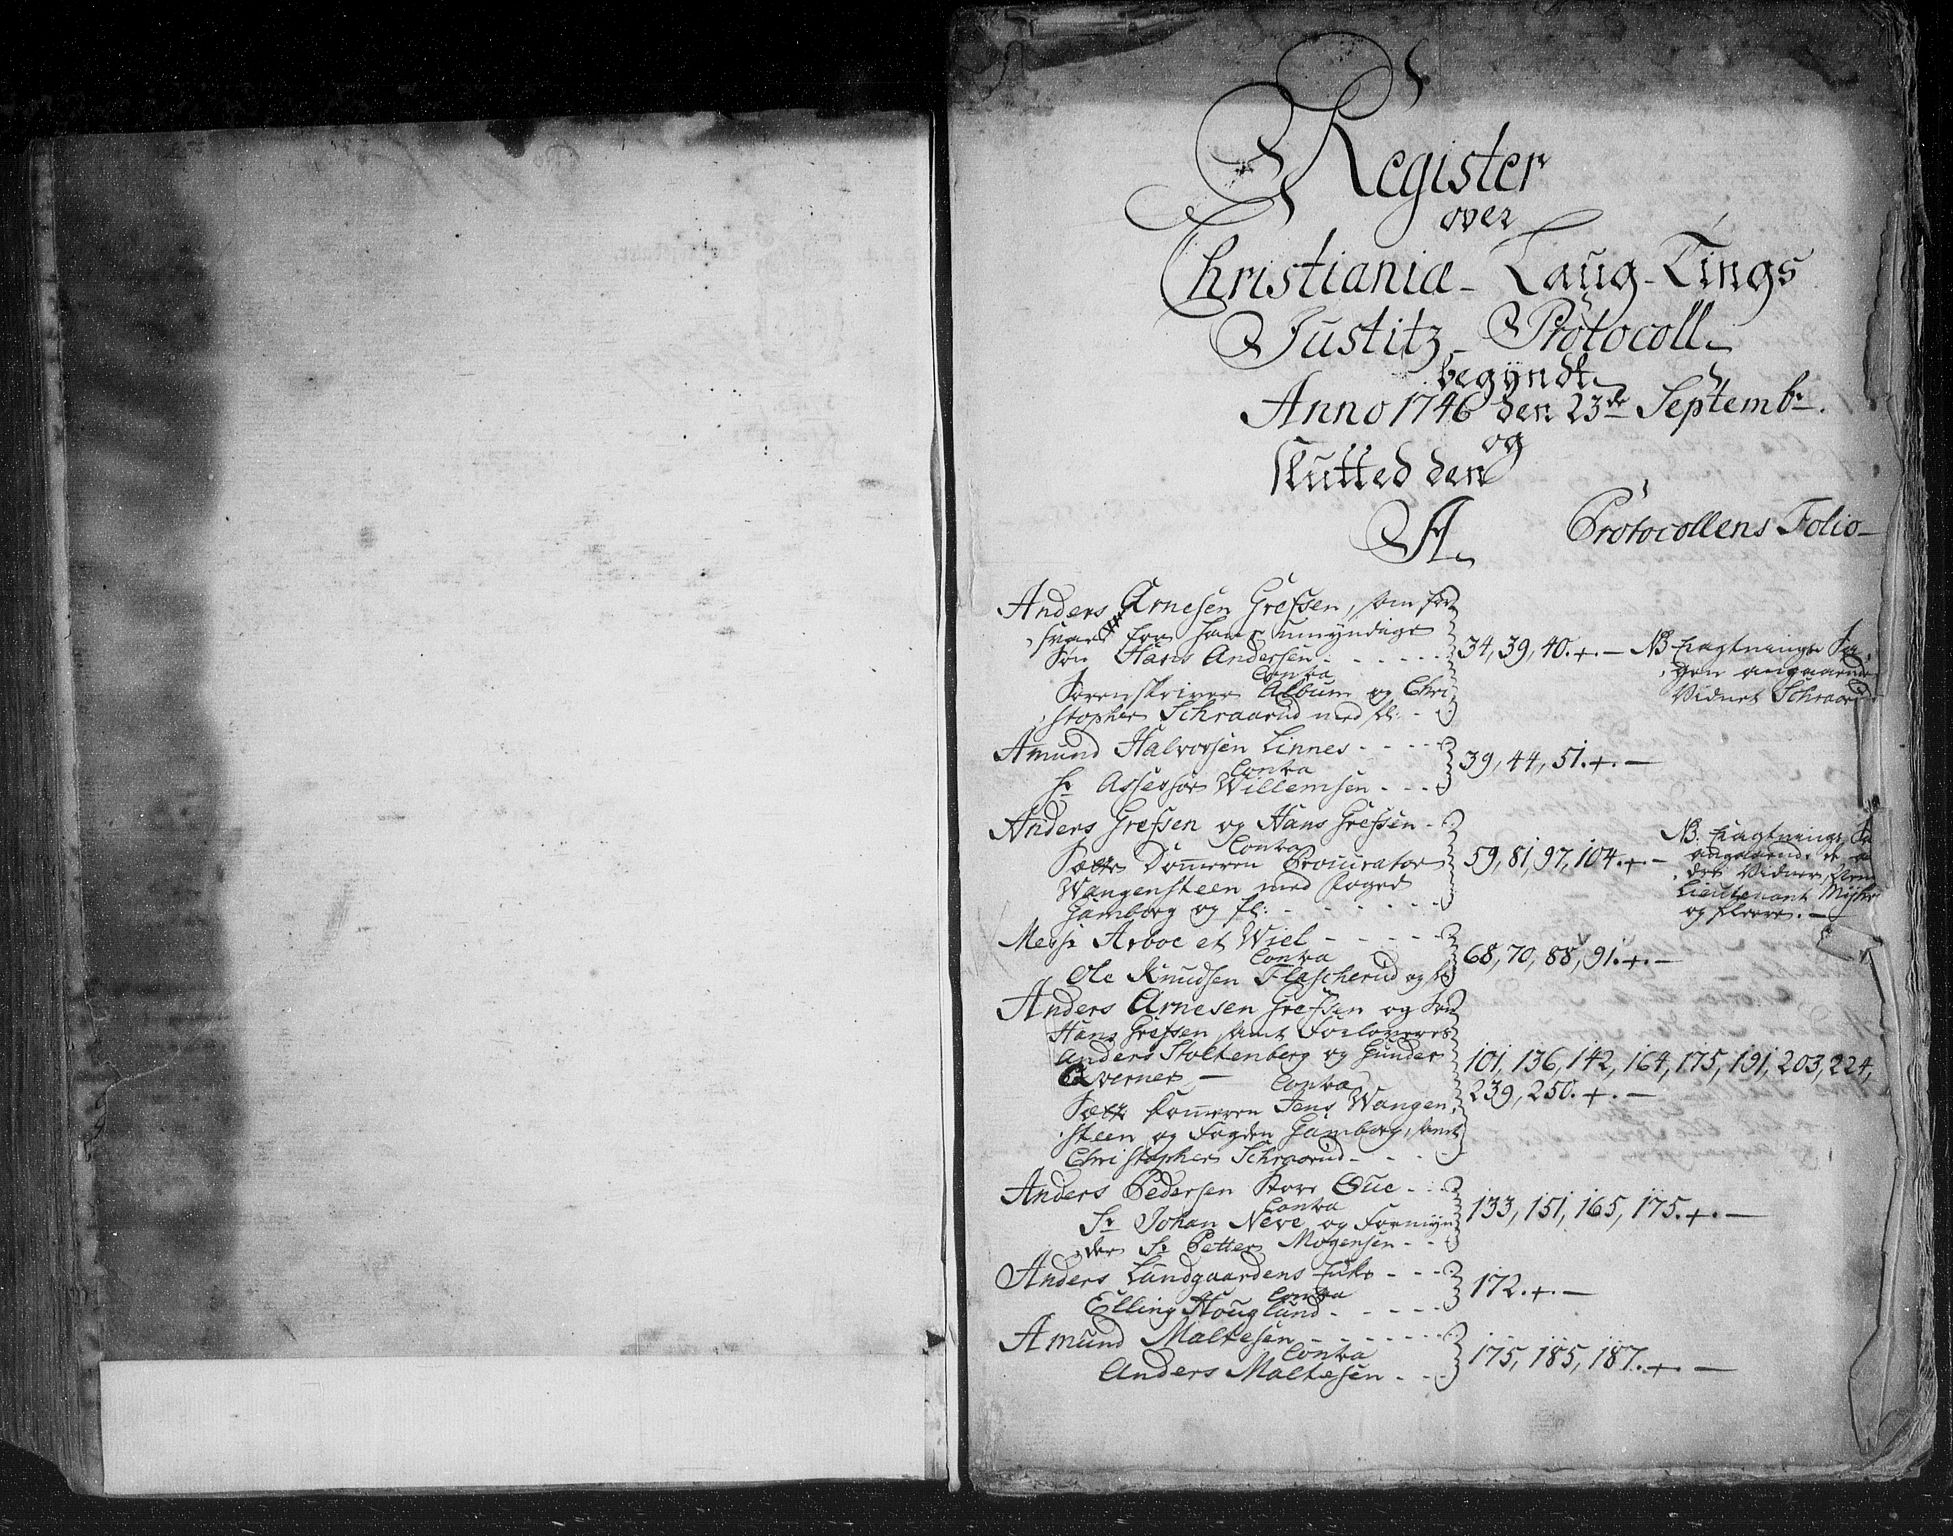 Register
over
Christiania Laug-Tings
Justitz Protocoll
begyndt
Anno 1746 den 23de Septembr.
og
slutted den
A. Protocollens Folio
Anders Arnesen Grefsen, som for
svar for hans umyndige
Søn Hans Andersen
Contra
Sorenskriver Album og Chri
stopher Schraarud med fl:
34, 39, 40.+.
NB Lagtnings Sa
gen angaaende
Vidnet Schraarud
Amund Halvorsen Linnes
Contra
Hr Assessor Willemsen
39, 44, 51.+.
Anders Grefsen og Hans Grefsen
Contra
Sætte Dommeren Procurator
Wangensteen med Foged
Gamborg og fl:
59, 81, 97, 104.+.
NB. Lagtnings Sa
angaaende
det Vidner, som
Lieutenant
og fleere.
Messrs Arboe et Wiel
Contra
Ole Knudsen Flascherud og fl
68, 70, 88, 91.+.
Anders Arnesen Grefsen og Søn
Hans Grefsen samt Forlovere
Anders Stoltenberg og Gunder
Qverner
Contra
Sætte Dommeren Jens Wangen
steen og Fogden Gamborg, samt
Christopher Schraarud
101, 136, 142, 164, 175, 191, 203, 224,
239, 250.+.
Anders Pedersen Store Oue
Contra
Sr Johan Neve og Formyn
der Sr Petter Mogensen
133, 151, 165, 175.+.
Anders Lundgaardens Enke
Contra
Elling Houglund
172.+.
Amund Maltesen
Contra
Anders Maltesen
175, 185, 187.+.